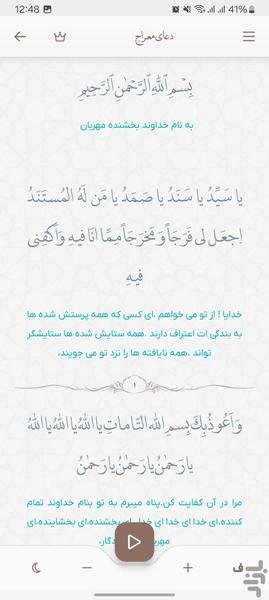 12:48
41%
دعای معراج
بِسْمِ اللهِ الرَّحْمٰنِ الرَّحِيْمِ
به نام خداوند بخشنده مهربان
يا سَيِّدُ يا سَنَدُ يا صَمَدُ يا مَن لَهُ المُستَنَدُ
اِجعَل لى فَرَجاً وَ مَخرَجاً مِمّا اَنَا فيهِ وَ اَكْفِنى
فيهِ
خدایا ! از تو می خواهم ،ای کسی که همه پرستش شده ها
به بندگی ات اعتراف دارند .همه ستایش شده ها ستایشگر
تواند .همه نایافته ها را نزد تو می جویند،
۱
وَ اَعُوذُ بِكَ بِسمِ اللهِ التّاماتِ يا اَللهُ يا اَللهُ يا اَللهُ
يا رَحمٰنُ يا رَحمٰنُ يا رَحمٰنُ
مرا در آن کفایت کن.پناه میبرم به تو بنام خداوند تمام
کننده.ای خدا ای خدا ای خدا. ای بخشنده،ای بخشاینده،ای
ف